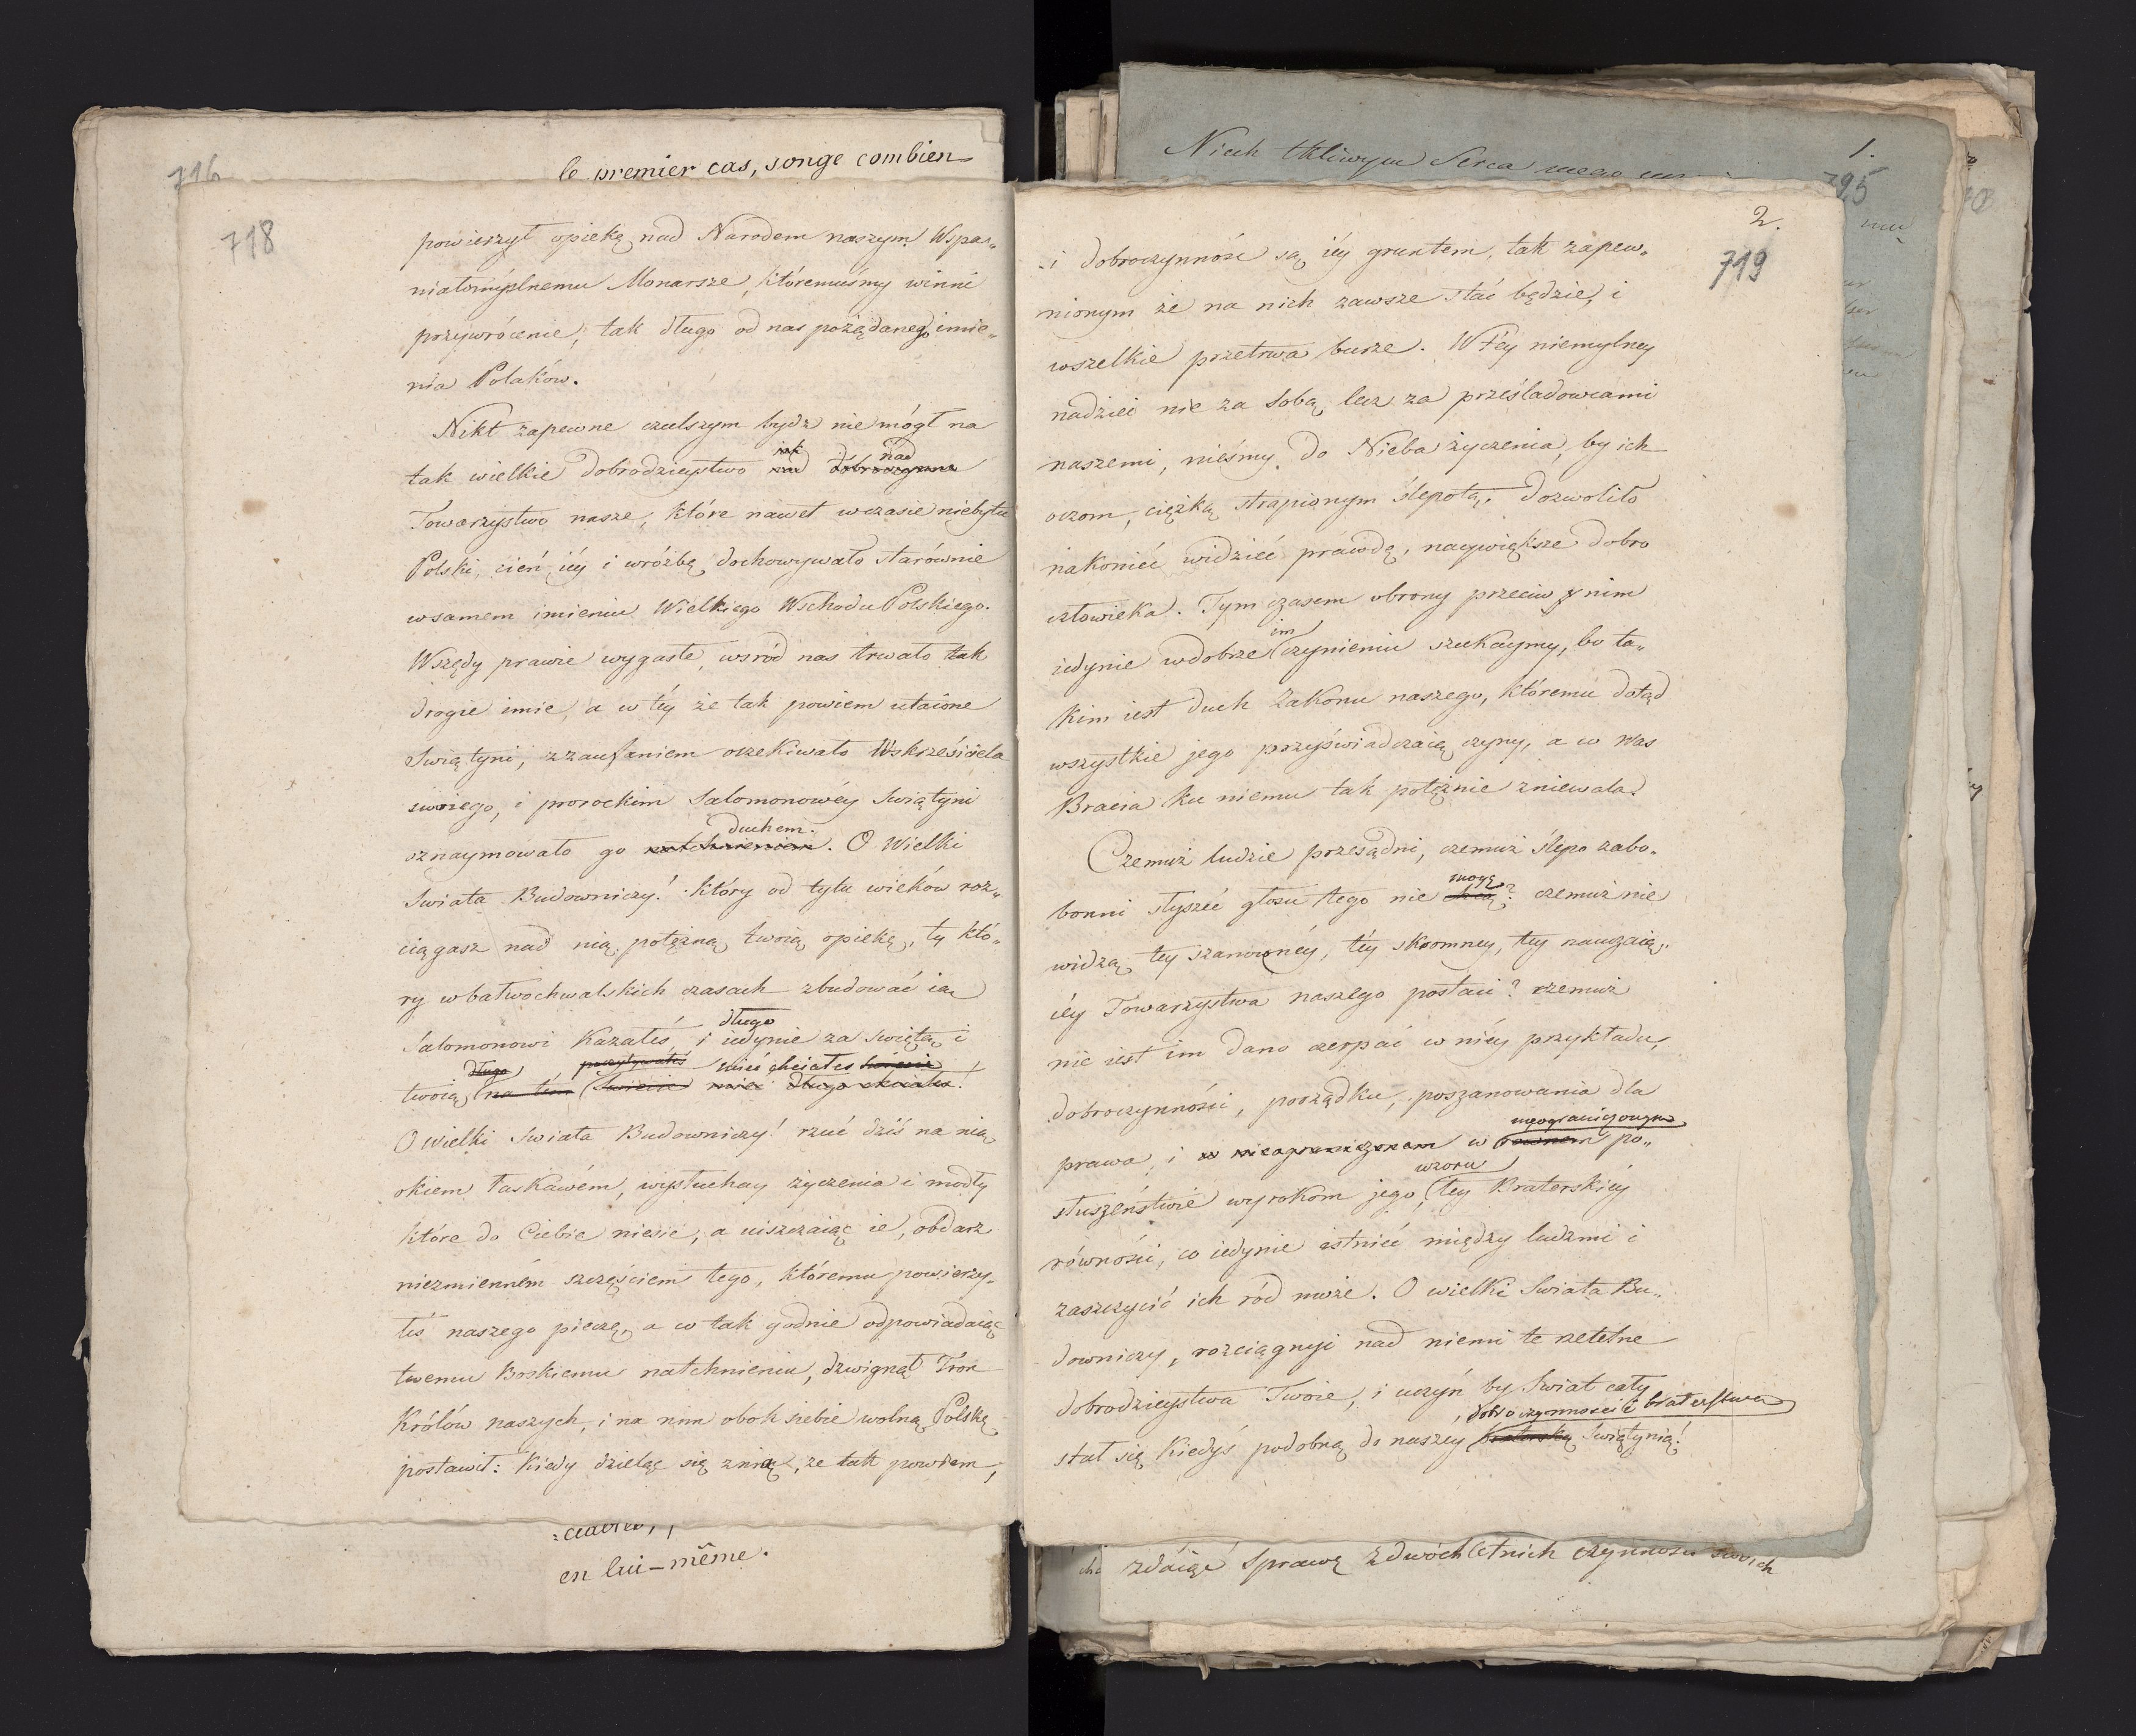 716
le premier cas, songe combien
718
powierzył opiekę nad Narodem naszym Wspa„
niałomyślnemu Monarsze, któremuśmy winni
przywrócenie, tak długo od nas pożądanego imie„
nia Polaków.
Nikt zapewne czulszym bydz nie mógł na
jak nad
tak wielkie dobrodzieystwo nad dobroczynne
Towarzystwo nasze, które nawet w czasie niebytu
Polski, cień iéy i wróżbę dochowywało starównie
w samem imieniu Wielkiego Wschodu Polskiego.
Wszędy prawie wygasłe, wsród nas trwało tak
drogie imie, a w téy że tak powiem utaióne
Swiątyni, z zaufaniem oczekiwało Wskrzesiciela
swoiego, i prorockim Salomonowéy Swiątyni
duchem.
oznaymowało go natchnieniem. O Wielki
Swiata Budowniczy! który od tylu wieków roz„
ciągasz nad nią potężną twoią opiekę, ty któ„
ry w bałwochwalskich czasach zbudować ią
długo
Salomonowi kazałeś, i iedynie za świętą i
długo poczytywałeś mieć chciałeś świecie
twoią na tém Swiecie mieć długo chciałeś!
O wielki Swiata Budowniczy! rzuć dziś na nią
okiem łaskawém, wysłuchay życzenia i modły
które do Ciebie niesie, a uiszczaiąc ie, obdarz
niezmienném szczęściem tego, któremu powierzy„
łeś naszego pieczę, a co tak godnie odpowiadaiąc
twemu Boskiemu natchnieniu, dzwignął Tron
Królów naszych, i na nim obok siebie wolną Polskę
postawił: kiedy dzieląc się z nią, że tak powiem,
ciaires,
en lui-même.
Niech tkliwym Serca mego
1.
795
2.
719
i dobroczynność są iéy gruntem, tak zapew„
nionym że na nich zawsze stać będzie, i
wszelkie przetrwa burze. W téy niemylney
nadziei nie za sobą lecz za prześladowcami
naszemi, nieśmy do Nieba życzenia, by ich
oczom, ciężką strapionym ślepotą, dozwoliło
nakoniec widzieć prawdę, naywiększe dobro
człowieka. Tym czasem obrony przeciw nim
im
iedynie w dobrze czynieniu szukaymy, bo ta„
kim iest duch Zakonu naszego, któremu dotąd
wszystkie jego przyświadczaią czyny, a co Was
Bracia ku niemu tak potężnie zniewala.
Czemuż ludzie przesądni, czemuż ślepo zabo„
mogą
bonni słyszeć głosu tego nie chcą? czemuż nie
widzą tey szanownéy, téy skromney, tey nauczaią„
céy Towarzystwa naszego postaci? czemuż
nie iest im dano czerpać w niéy przykładu,
dobroczynności, porządku, poszanowania dla
nieograniczonym
prawa, i w nieograniczonem w równem po„
wzoru
słuszeństwie wyrokom jego, tey Braterskiéy
równości, co iedynie istnieć między ludzmi i
zaszczycić ich ród może. O wielki Swiata Bu„
downiczy, rozciągnyi nad niemi te rzetelne
dobrodzieystwa Twoie, i uczyń by Swiat cały
dobroczynności i braterstwa
stał się kiedyś podobną do naszey Braterską Swiątynią!
zdaiąc Sprawę z dwóchletnich czynności swoich